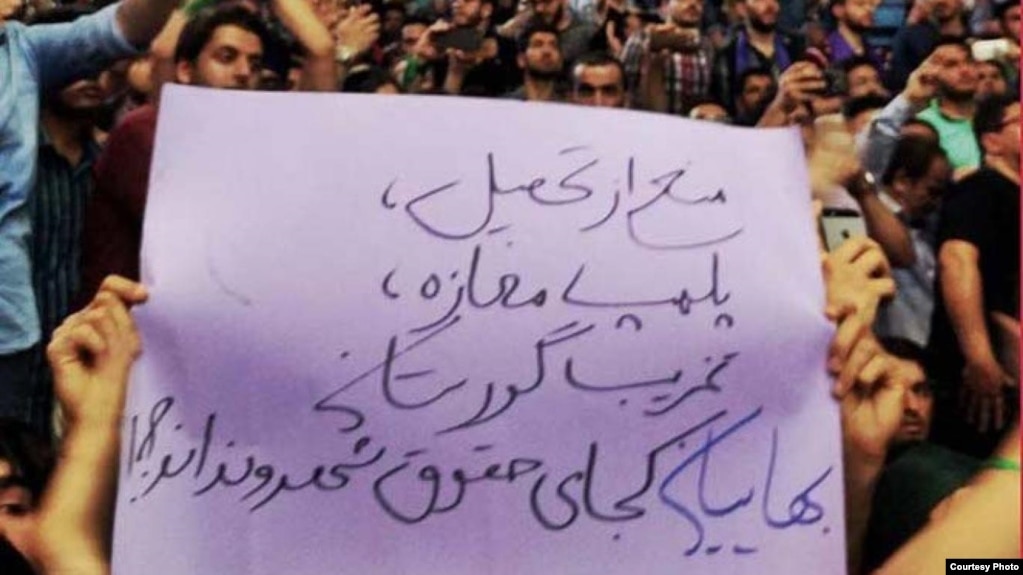 منع از تحصیل،
پلمپ مغازه،
تخریب گورستان
بهاییان کجای حقوق شهروندند؟!
Courtesy Photo